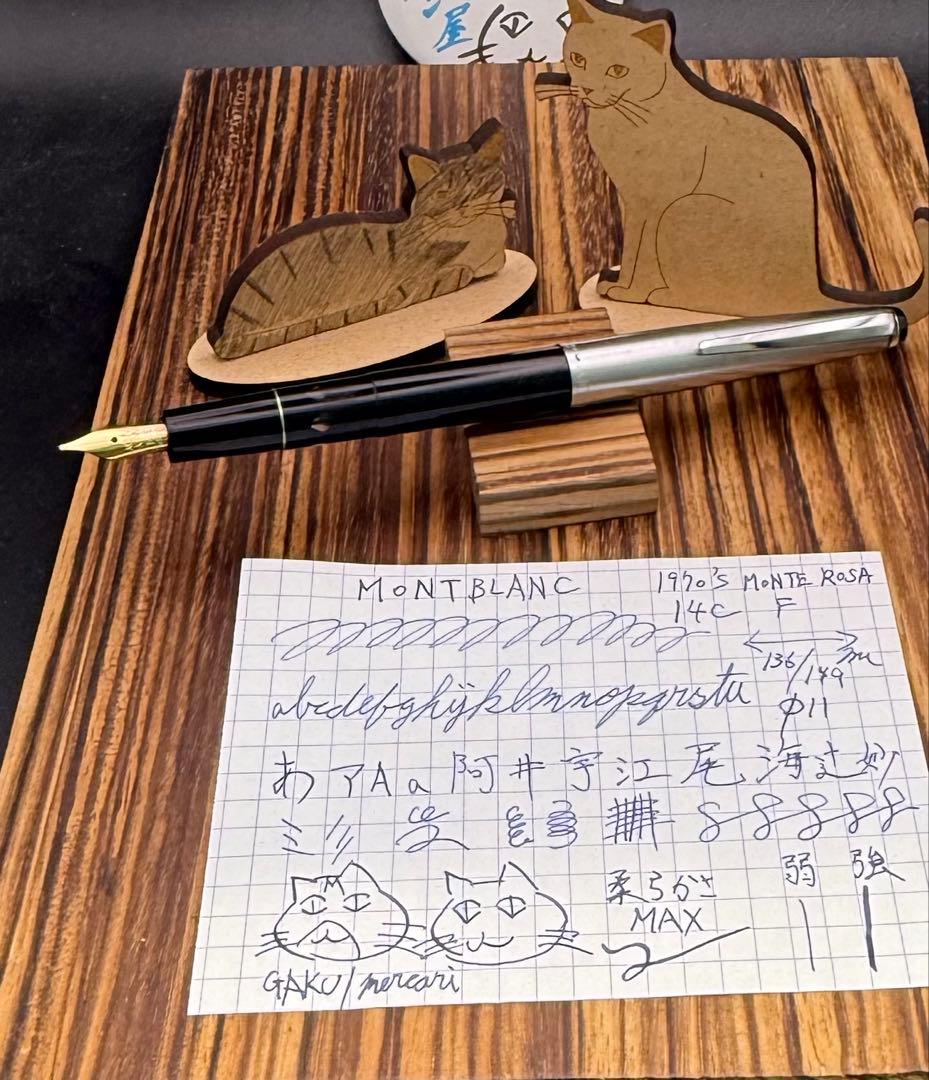 屋
MONTBLANC 1970's MONTE ROSA
14C F
136/149 mm
abcdefghijklmnopqrstu φ11
あアAa阿井宇江尾海辻妙
ミリ
柔らかさ 弱 強
MAX
GAKU/mercari